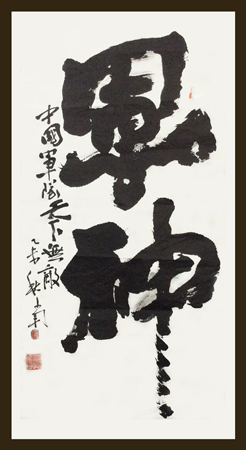 軍神
中國軍隊天下無敵
乙未秋